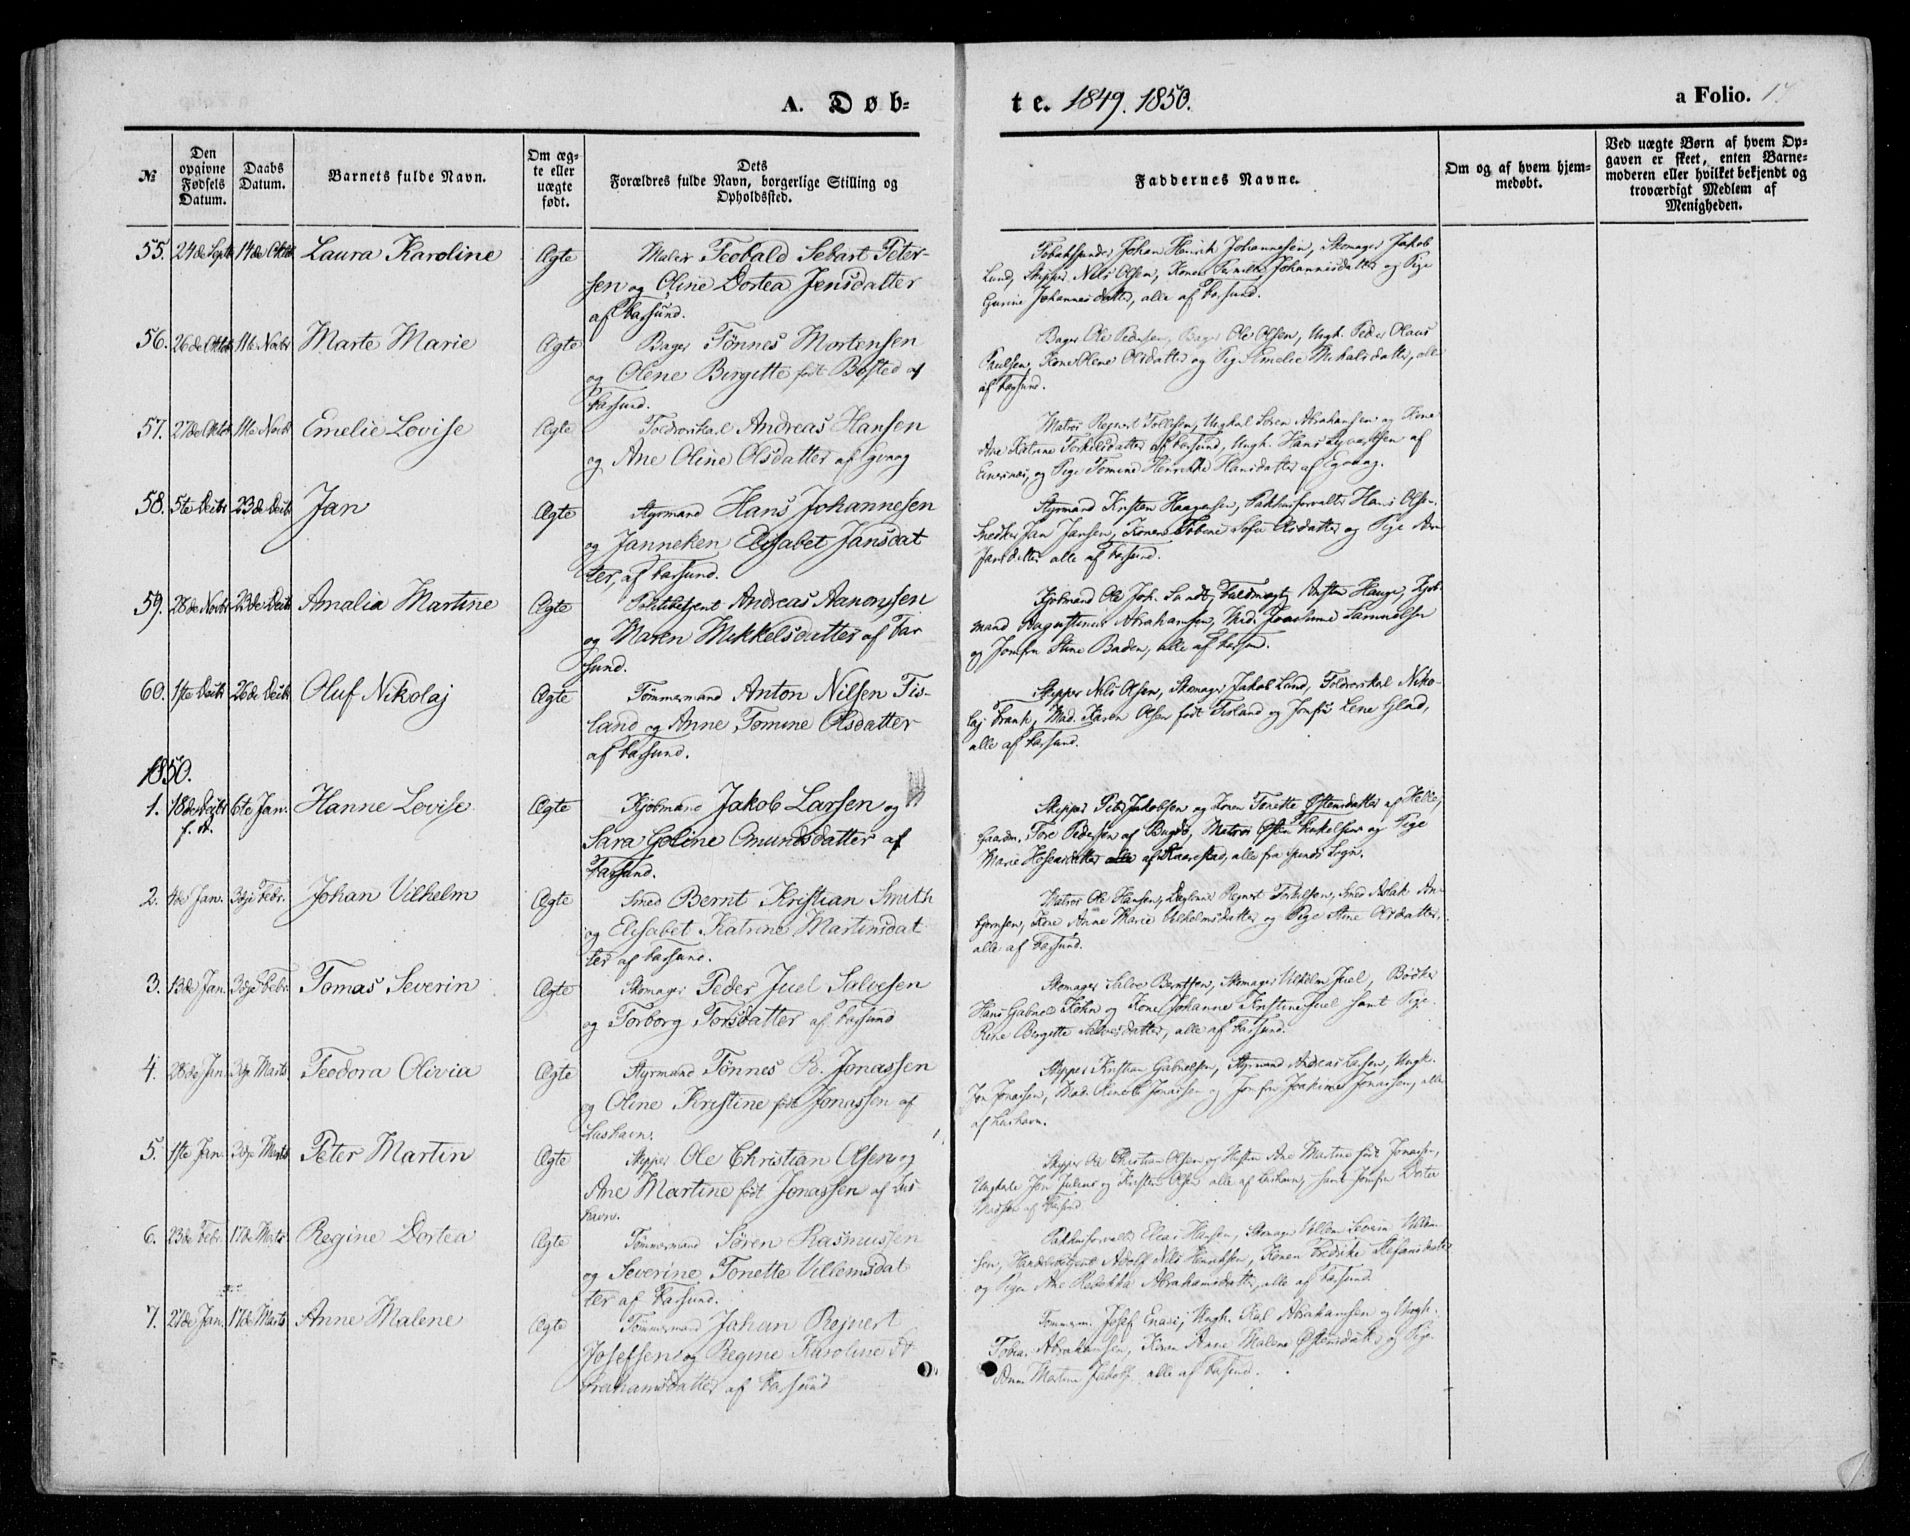 A. Døb-
te. 1849. 1850.
a Folio.
№
Den opgivne Fødsels Datum.
Daabs Datum.
Barnets fulde Navn.
Om ægte eller uægte født.
Dets Forældres fulde Navn, borgerlige Stilling og Opholdssted.
Faddernes Navne.
Om og af hvem hjemmedøbt.
Ved uægte Børn af hvem Opgaven er skeet, enten Barnemoderen eller hvilket bekjendt og troværdigt Medlem af Menigheden.
55. 24de Septb 14de Oktob Laura Karoline Ægte Maler Teobald Sebart Peter-
sen og Oline Dortea Jensdatter
af Farsund.
Johan Henrik Johannesen, Skomager Jakob
Lund, Skipper Nils Olsen, Konen Johannesdatter og Pige
Gurine Johannesdatter, alle af Farsund.
56. 26de Oktob 11te Novbr Marte Marie Ægte Bager Tønnes Mortensen
og Olene Birgitte født Bøsted af
Farsund.
Bager Ole Pedersen, Bager Ole Olsen, Ungk. Peder Olaus
Paulsen, Kone Olene Olsdatter og Pig Amelie Mikalsdatter, alle
af Farsund.
57. 27de Oktob 11te Novbr Emelie Lovise Ægte Toldrorskarl Andreas Hansen
og Ane Oline Olsdatter af Egvaag
Matros Regnert Tollefsen, Ungkal Søren Abrahamsen og Kone
Ane Katrine Torkelsdatter af Farsund, Ungk. Hans Syvertsen af
og Pige Tomine Henrikke Hansdatter af Egvaag.
58. 5te Decbr 23de Decb Jan Ægte Styrmand Hans Johannesen
og Janneken Elisabet Jansdat
ter, af Farsund.
Styrmand Kristen Haagensen, Pakhusforvalter Hans Olsen
Snedker Jan Jansen, Konen Tobine Sofie Olsdatter og Pige
Jansdatter alle af Farsund.
59. 28de Novbr 23de Decb Amalia Martine Ægte Politibetjent Andreas Aanonsen
og Maren Mikkelsdatter af Far
sund.
Kjøbmand Ole Joh. Sundt, Hauge, Kjøb-
mand Augustinus Abrahamsen, Mad. Samuelsen
og Jomfru Stine Baden, alle af Farsund.
60. 1ste Decb 26de Decb Oluf Nikolaj Ægte Tømmermand Anton Nilsen Tis-
land og Anne Tomine Olsdatter
af Farsund.
Skipper Nils Olsen, Skomager Jakob Lund, Toldrorskal Niko-
laj Frank, Mad. Karen Olsen født Tisland og Jomfru Lene Glad,
alle af Farsund.
1850.
1. 18de Decbr f. A. 6te Jan. Hanne Lovise Ægte Kjøbmand Jakob Larsen og
Sara Goline Omundsdatter af
Farsund.
Skipper Peter Jakobsen og Konen Tonette Østensdatter af Helle,
Gaardm. Tore Pedersen af Bugdø, Matros Østen Torkelsen og Pige
Marie Hoseasdatter af Kaarestad, alle fra Spinds Sogn.
2. 4de Jan. 3dje Febr. Johan Vilhelm Ægte Smed Bernt Kristian Smith
og Elisabet Katrine Martinsdat
ter af Farsund.
Matros Ole Hansen, Dagløner Regnert Torkilsen, Smed Aslak An
bjørnsen, Kone Anne Marie Vilhelmsdatter og Pige Stine Olsdatter,
alle af Farsund.
3. 13de Jan. 3dje Febr. Tomas Severin Ægte Skomager Peder Juel Salvesen
og Torborg Torsdatter af Farsund
Skomager Salve Berntsen, Skomager Vilhelm Juel, Bødker
Hans Gabriel Kohn og Kone Johanne Kristine Juel samt Pige
Rine Birgitte Salvesdatter, alle af Farsund.
4. 28de Jan. 3dje Marts Teodora Olivia Ægte Styrmand Tønnes B. Jonassen
og Oline Kristine født Jonassen af
Lushavn.
Skipper Kristian Gabrielsen, Styrmand Andreas Larsen, Ungk.
Jon Jonassen, Mad. Jonassen og Jomfru Joakime Jonassen, alle
af Lushavn.
5. 1ste Jan. 3dje Marts Peter Martin Ægte Skipper Ole Christian Olsen og
Ane Martine født Jonassen af Lus-
havn.
Skipper Ole Christian Olsen og Hustru Ane Martine født Jonassen,
Ungkarle Jon Julius og Kristen Olsen alle af Lushavn, samt Jomfru Dortea
Madsen af Farsund
6. 23de Febr. 17de Marts Regine Dortea Ægte Tømmermand Søren Rasmussen
og Severine Tonette Villemsdat
ter af Farsund.
Pakhusforvalter Elias Hansen, Skomager Villem Severin Villem
sen, Handelsbetjent Adolf Nils Henriksen, Konen Fredrike Stefansdatter
og Pigen Ane Rebekka Abrahamsdatter, alle af Farsund.
7. 27de Jan. 17de Marts Anne Malene Ægte Tømmermand Johan Regnert
Josefsen og Regine Karoline A
brahamsdatter af Farsund
Tømmerm. Josef Ungk. Karl Abrahamsen og Ungk.
Tobias Abrahamsen, Konen Anne Malene Østensdatter og Pige
Martine Jakobs. alle af Farsund.